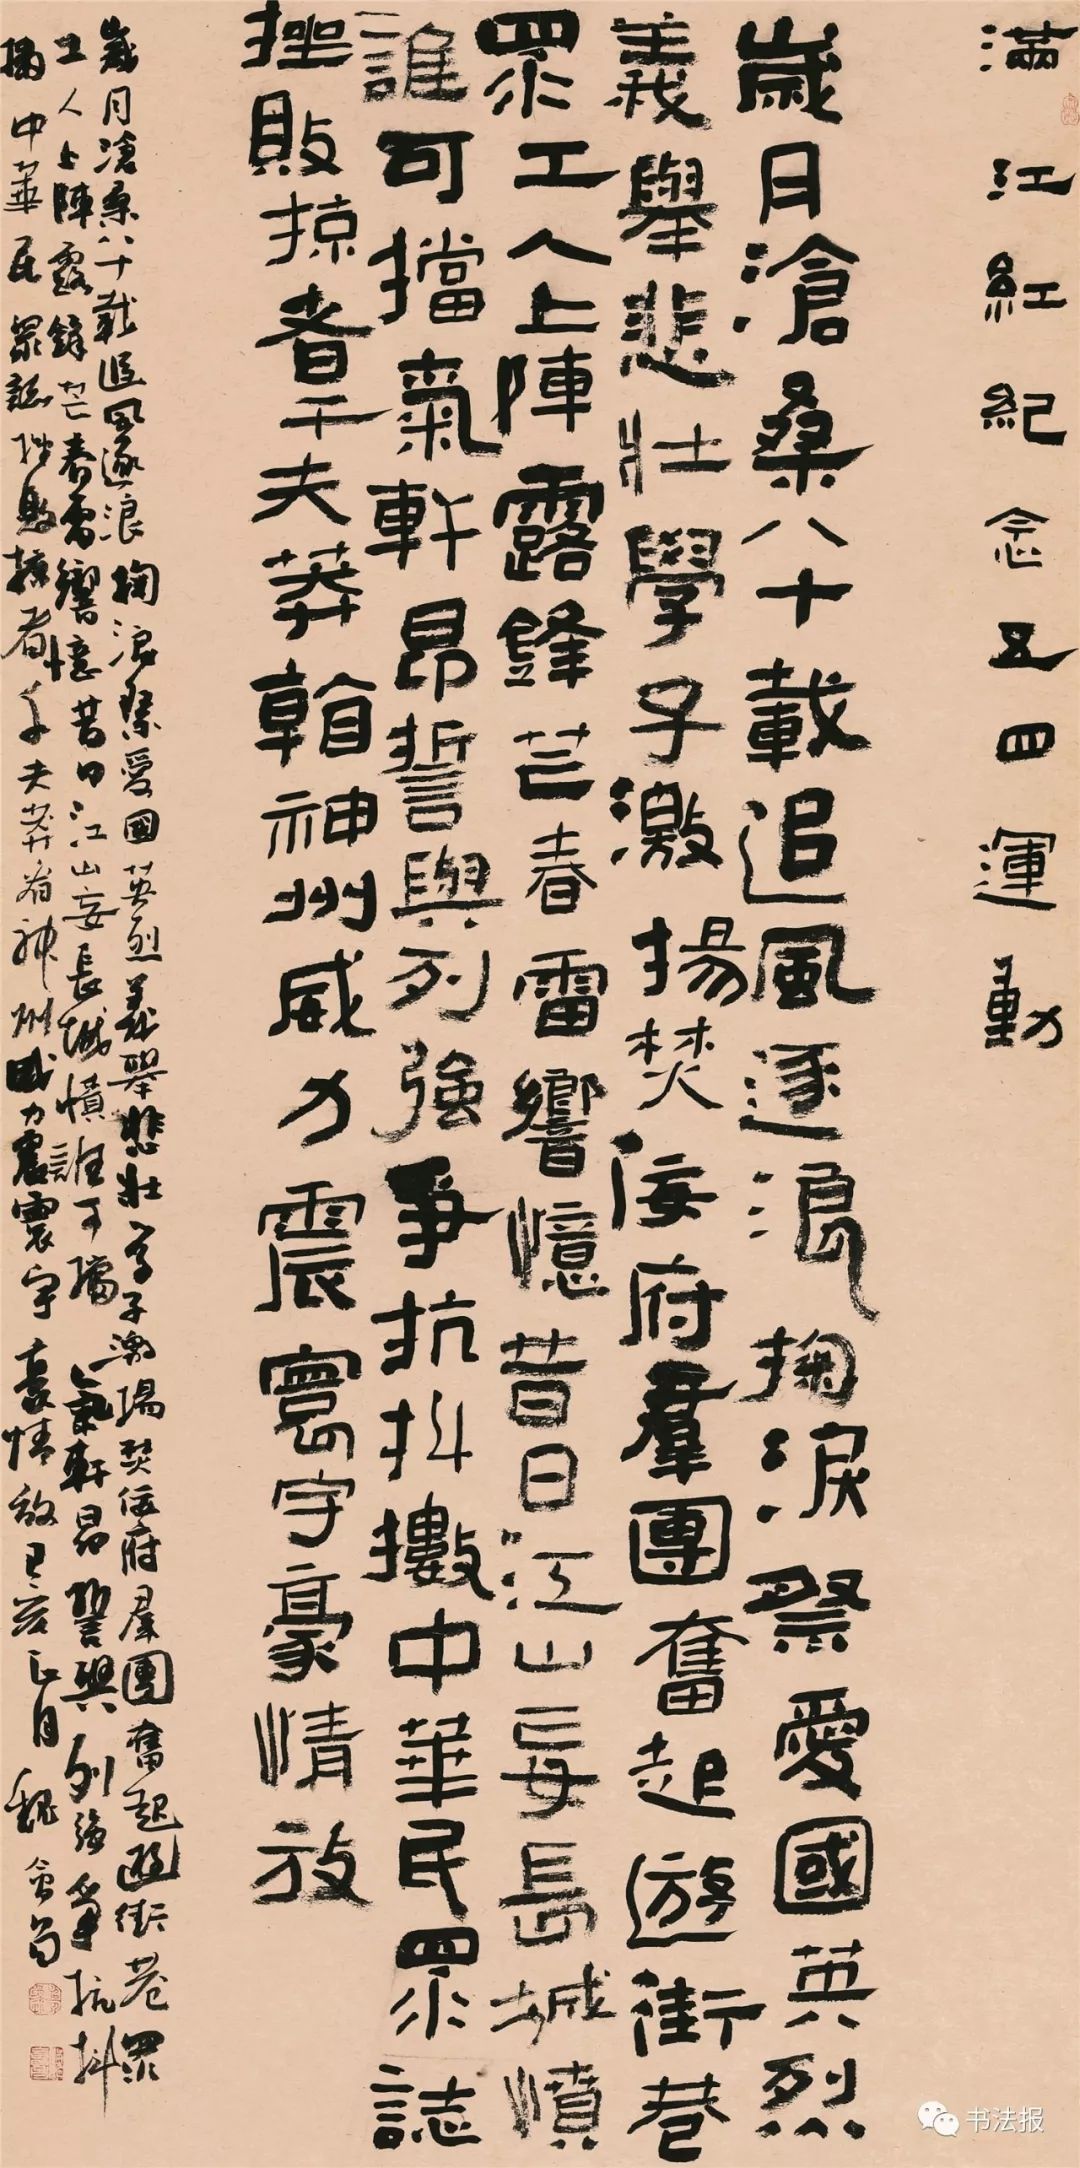 滿江紅紀念五四運動
歲月滄桑八十載追風逐浪掬淚祭愛國英烈
義舉悲壯學子激揚焚佞府羣團奮起遊街巷
眾工人上陣露鋒芒春雷響憶昔日江山妄長城憤
誰可擋氣軒昂誓與列強爭抗抖擻中華民眾誌
挫敗掠者千夫莽翰神州威力震寰宇豪情放
歲月滄桑八十載追風逐浪掬淚祭愛國英烈義舉悲壯學子激揚焚佞府羣團奮起遊街巷眾
工人上陣露鋒芒春雷響憶昔日江山妄長城憤誰可擋氣軒昂誓與列強爭抗抖
擻中華民眾誌挫敗掠者千夫莽翰神州威力震寰宇豪情放己亥正月魏
书法报